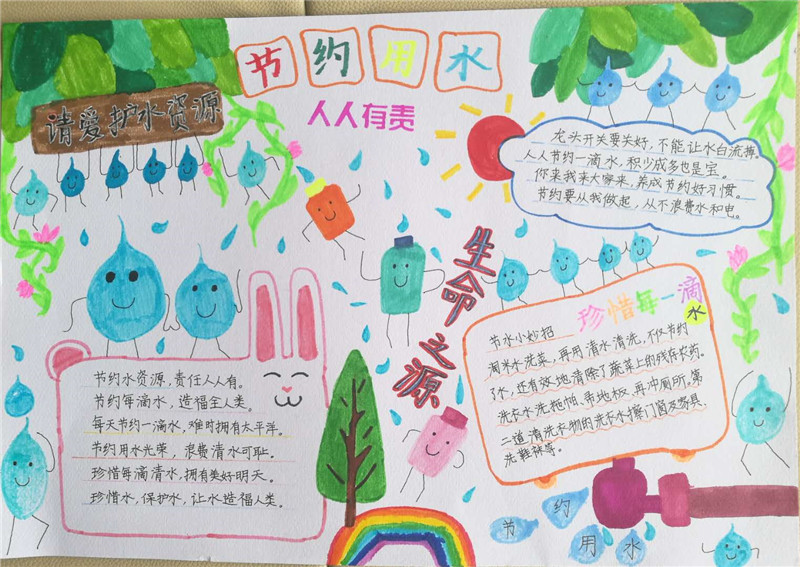 节约用水
人人有责
请爱护水资源
龙头开关要关好,不能让水白流掉。
人人节约一滴水,积少成多也是宝。
你来我来大家来,养成节约好习惯。
节约要从我做起,从不浪费水和电。
生命之源
珍惜每一滴水
节水小妙招
淘米水洗菜,再用清水清洗,不仅节约
了水,还有效地清除了蔬菜上的残存农药。
洗衣水洗拖帕、帚地板、再冲厕所,第
二道清洗衣物的洗衣水擦门窗及家具、
洗鞋袜等。
节约水资源,责任人人有。
节约每滴水,造福全人类。
每天节约一滴水,难时拥有太平洋。
节约用水光荣,浪费清水可耻。
珍惜每滴清水,拥有美好明天。
珍惜水,保护水,让水造福人类。
节约用水